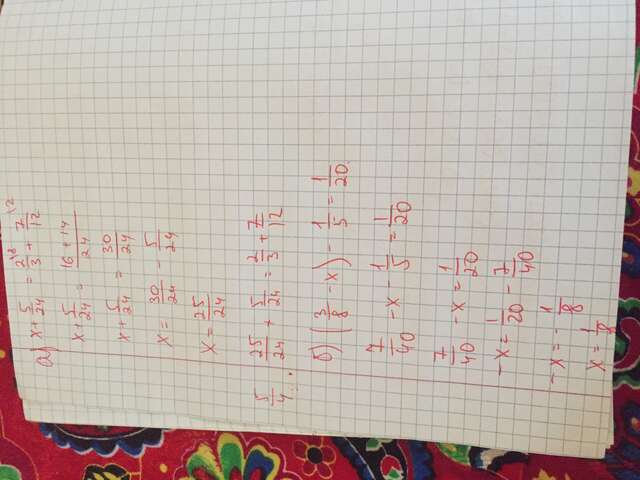 а) x + 5/24 = 2/3 \8 + 7/12 \2
x + 5/24 = (16 + 14)/24
x + 5/24 = 30/24
x = 30/24 - 5/24
x = 25/24
25/24 + 5/24 = 2/3 + 7/12
5/4
б) (3/8 - x) - 1/5 = 1/20
7/40 - x - 1/5 = 1/20
7/40 - x = 1/20
-x = 1/20 - 7/40
-x = - 1/8
x = 1/8